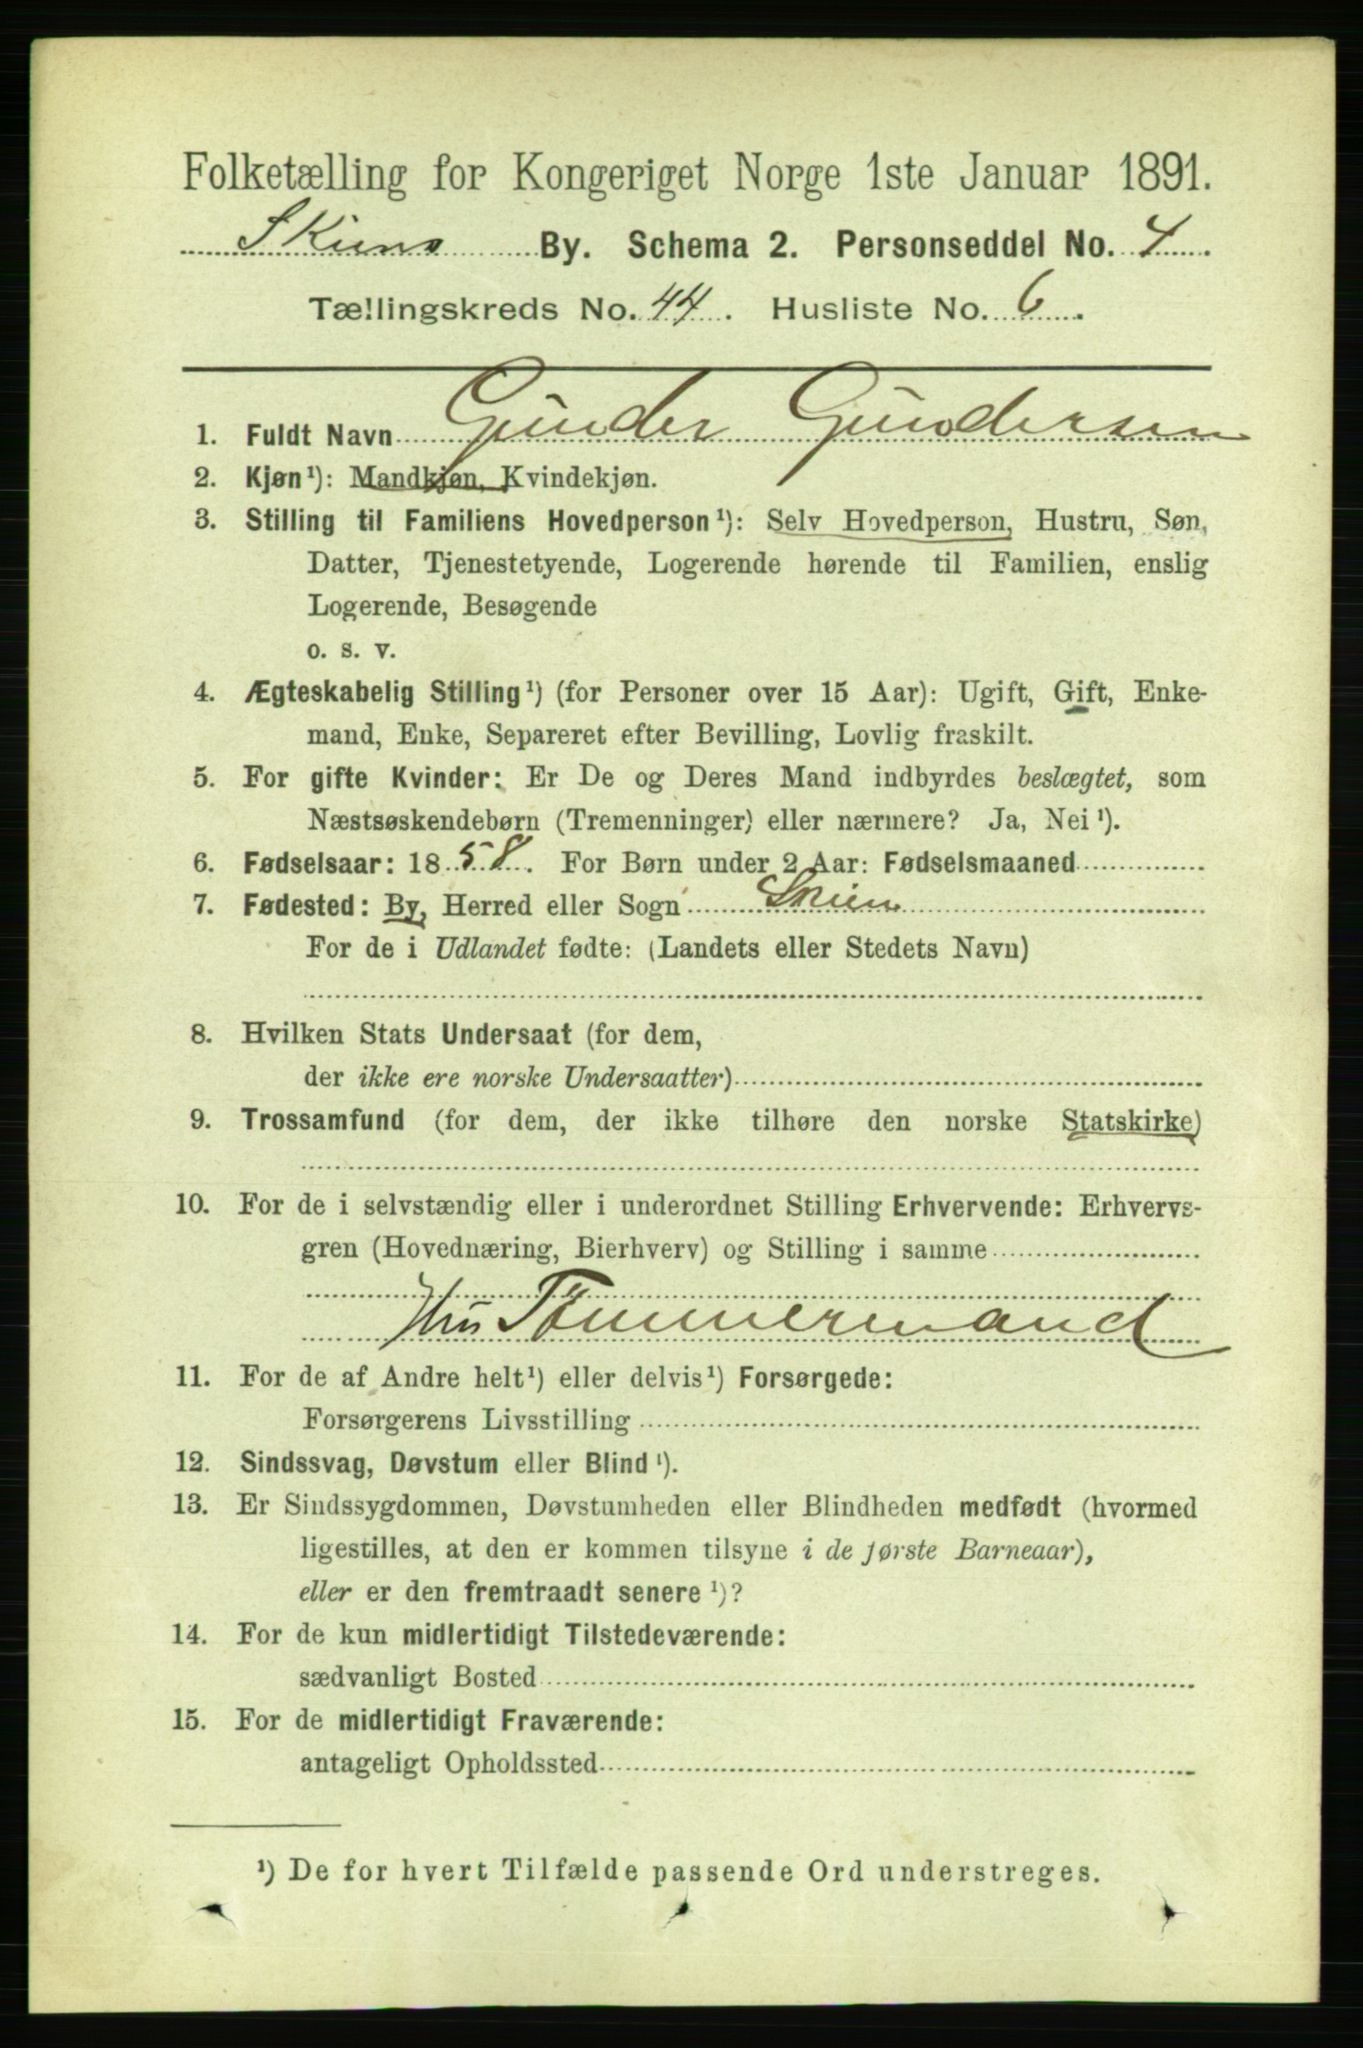 Folketælling for Kongeriget Norge 1ste Januar 1891.
Skiens By. Schema 2. Personseddel No. 4
Tællingskreds No. 44. Husliste No. 6.
1. Fuldt Navn Gunder Gundersen
2. Kjøn¹): Mandkjøn, Kvindekjøn.
3. Stilling til Familiens Hovedperson¹): Selv Hovedperson, Hustru, Søn,
Datter, Tjenestetyende, Logerende hørende til Familien, enslig
Logerende, Besøgende
o. s. v.
4. Ægteskabelig Stilling¹) (for Personer over 15 Aar): Ugift, Gift, Enke-
mand, Enke, Separeret efter Bevilling, Lovlig fraskilt.
5. For gifte Kvinder: Er De og Deres Mand indbyrdes beslægtet, som
Næstsøskendebørn (Tremenninger) eller nærmere? Ja, Nei¹).
6. Fødselsaar: 1858. For Børn under 2 Aar: Fødselsmaaned
7. Fødested: By, Herred eller Sogn Skien
For de i Udlandet fødte: (Landets eller Stedets Navn)
8. Hvilken Stats Undersaat (for dem,
der ikke ere norske Undersaatter)
9. Trossamfund (for dem, der ikke tilhøre den norske Statskirke)
10. For de i selvstændig eller i underordnet Stilling Erhvervende: Erhvervs-
gren (Hovednæring, Bierhverv) og Stilling i samme
Hus Tömmermand
11. For de af Andre helt¹) eller delvis¹) Forsørgede:
Forsørgerens Livsstilling
12. Sindssvag, Døvstum eller Blind¹).
13. Er Sindssygdommen, Døvstumheden eller Blindheden medfødt (hvormed
ligestilles, at den er kommen tilsyne i de første Barneaar),
eller er den fremtraadt senere¹)?
14. For de kun midlertidigt Tilstedeværende:
sædvanligt Bosted
15. For de midlertidigt Fraværende:
antageligt Opholdssted
¹) De for hvert Tilfælde passende Ord understreges.